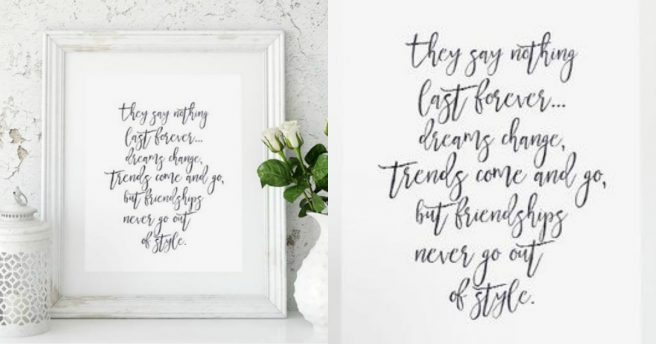 they say nothing
last forever...
dreams change,
trends come and go,
but friendships
never go out
of style.
they say nothing
last forever...
dreams change,
trends come and go,
but friendships
never go out
of style.